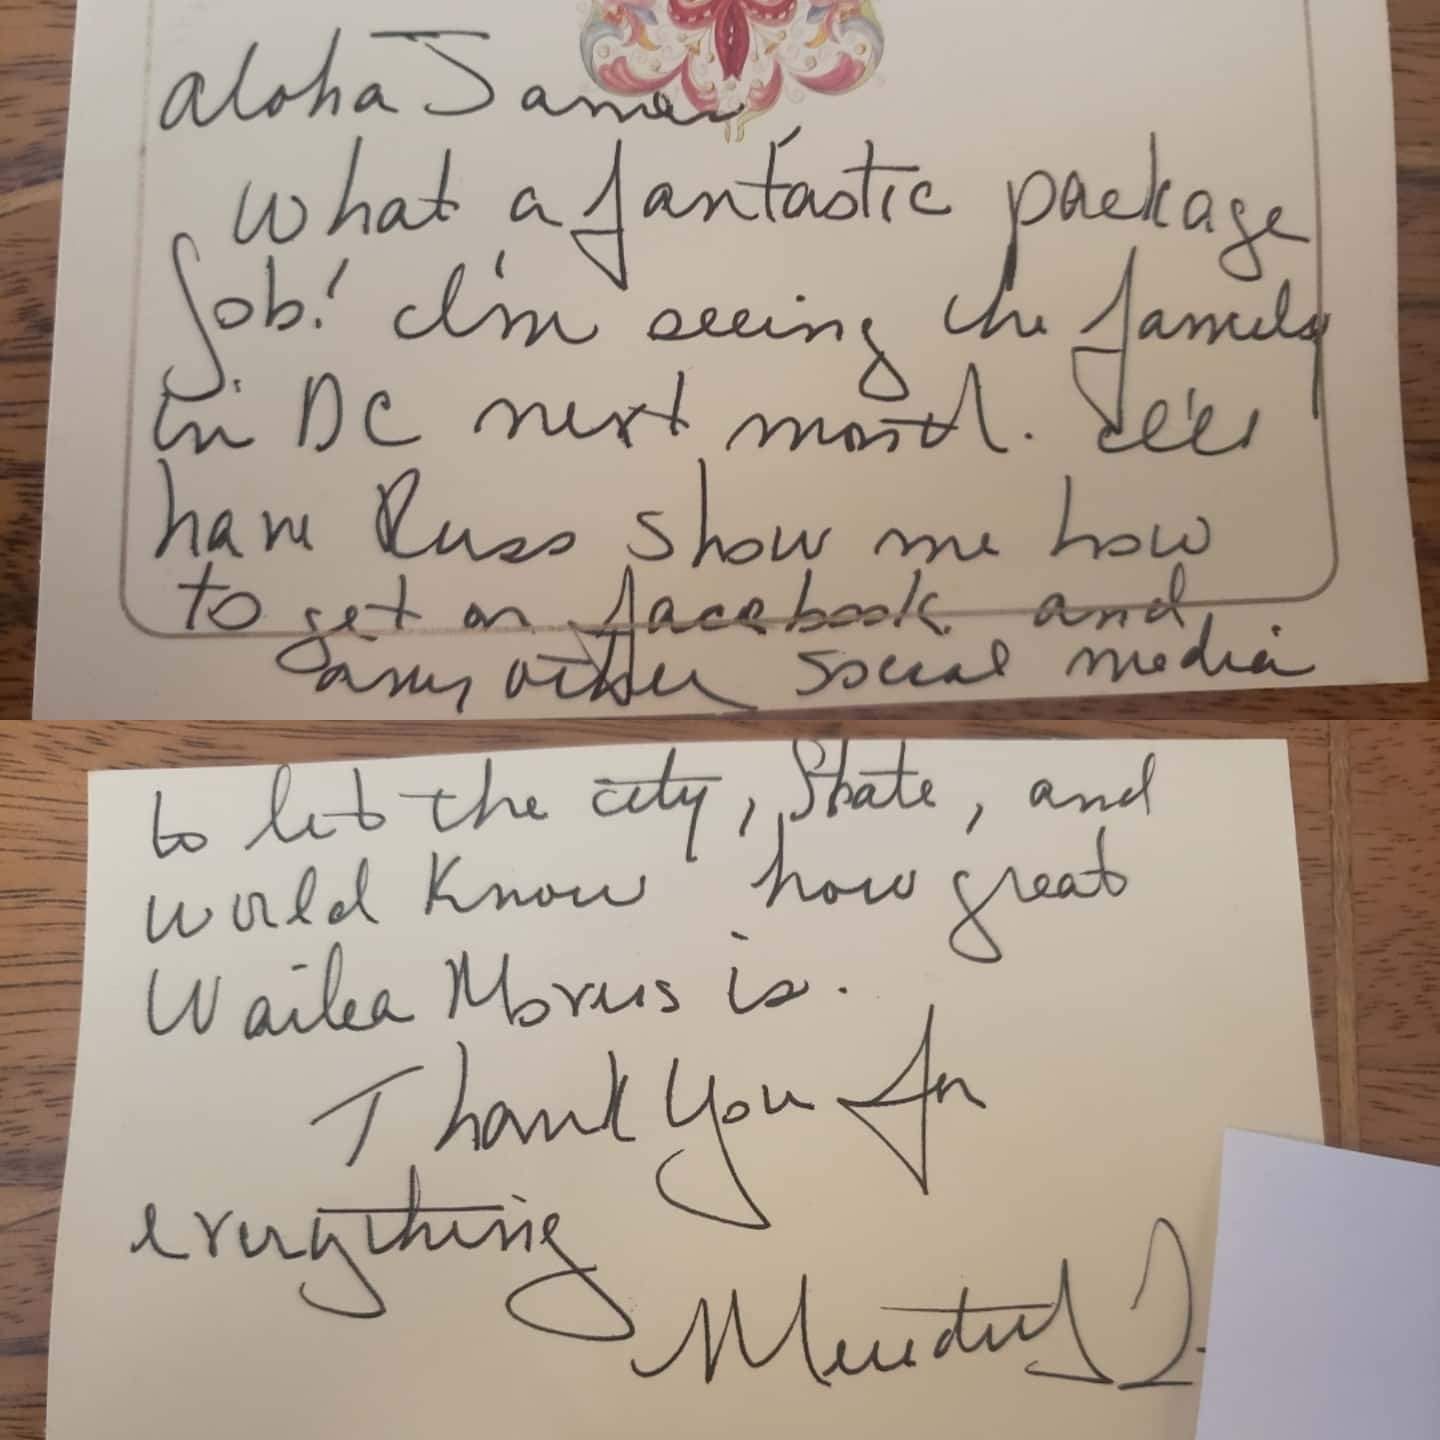 aloha James
What a fantastic package
job! I'm seeing the family
in DC next month. I'll
have Russ show me how
to get on facebook and
any other social media
to let the city, State, and
world know how great
Wailea Movers is.
Thank you for
everything